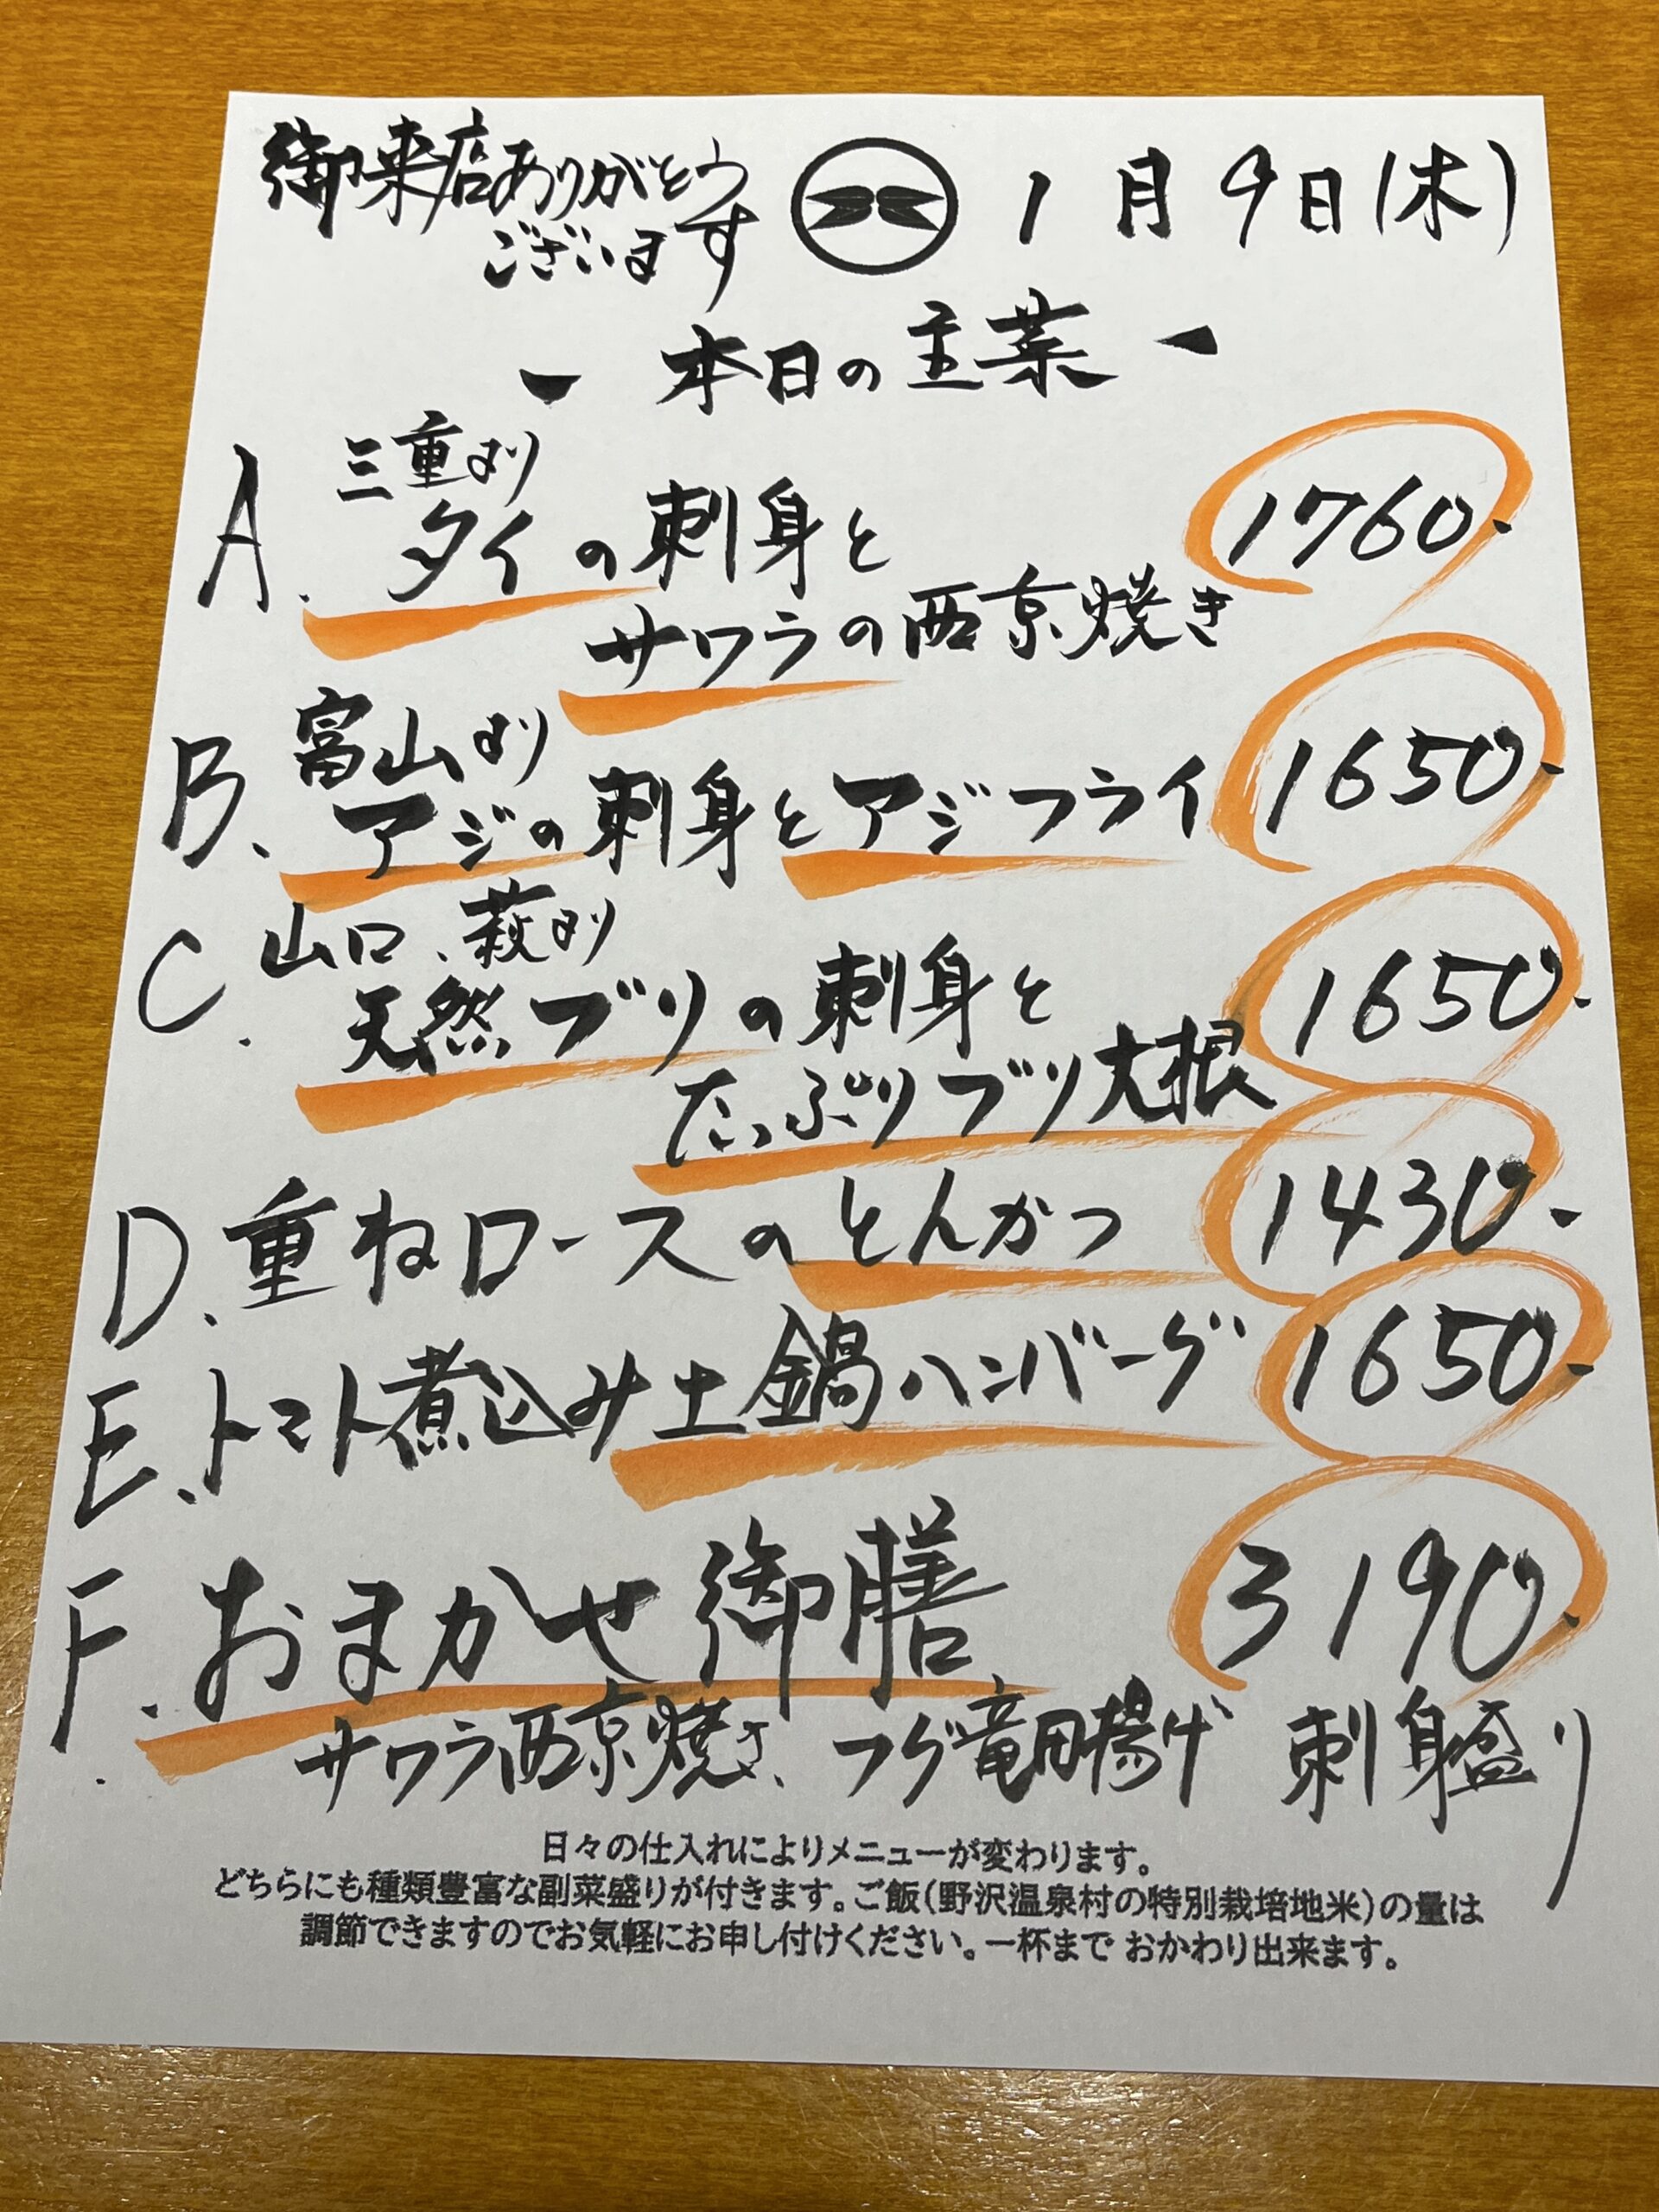 御来店ありがとう
ございます
1月9日(木)
- 本日の主菜 -
三重より
A. タイの刺身と 1760-
サワラの西京焼き
富山より
B. アジの刺身とアジフライ 1650-
山口、萩より
C. 天然ブリの刺身と 1650-
たっぷりブリ大根
D. 重ねロースのとんかつ 1430-
E. トマト煮込み土鍋ハンバーグ 1650-
F. おまかせ御膳 3190-
サワラ西京焼き、フグ竜田揚げ 刺身盛り
日々の仕入れによりメニューが変わります。
どちらにも種類豊富な副菜盛りが付きます。ご飯(野沢温泉村の特別栽培地米)の量は
調節できますのでお気軽にお申し付けください。一杯まで おかわり出来ます。